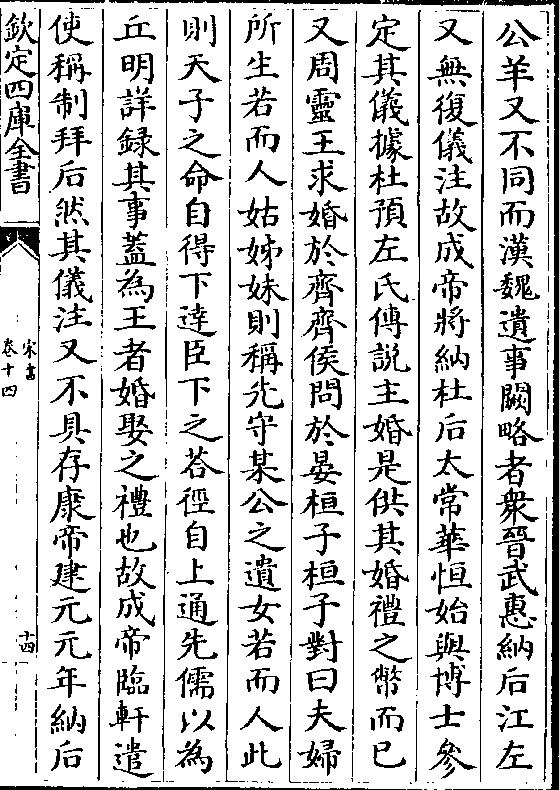 公羊又不同而漢魏遺事闕略者衆晉武惠納后江左
又無復儀注故成帝將納杜后太常華恒始與博士參
定其儀據杜預左氏傳説主婚是供其婚禮之幣而已
又周靈王求婚於齊齊侯問於晏桓子桓子對曰夫婦
所生若而人姑姊妹則稱先守某公之遺女若而人此
則天子之命自得下達臣下之荅徑自上通先儒以為
丘明詳録其事蓋為王者婚娶之禮也故成帝臨軒遣
使稱制拜后然其儀注又不具存康帝建元元年納后
欽定四庫全書
宋書
卷十四
十四